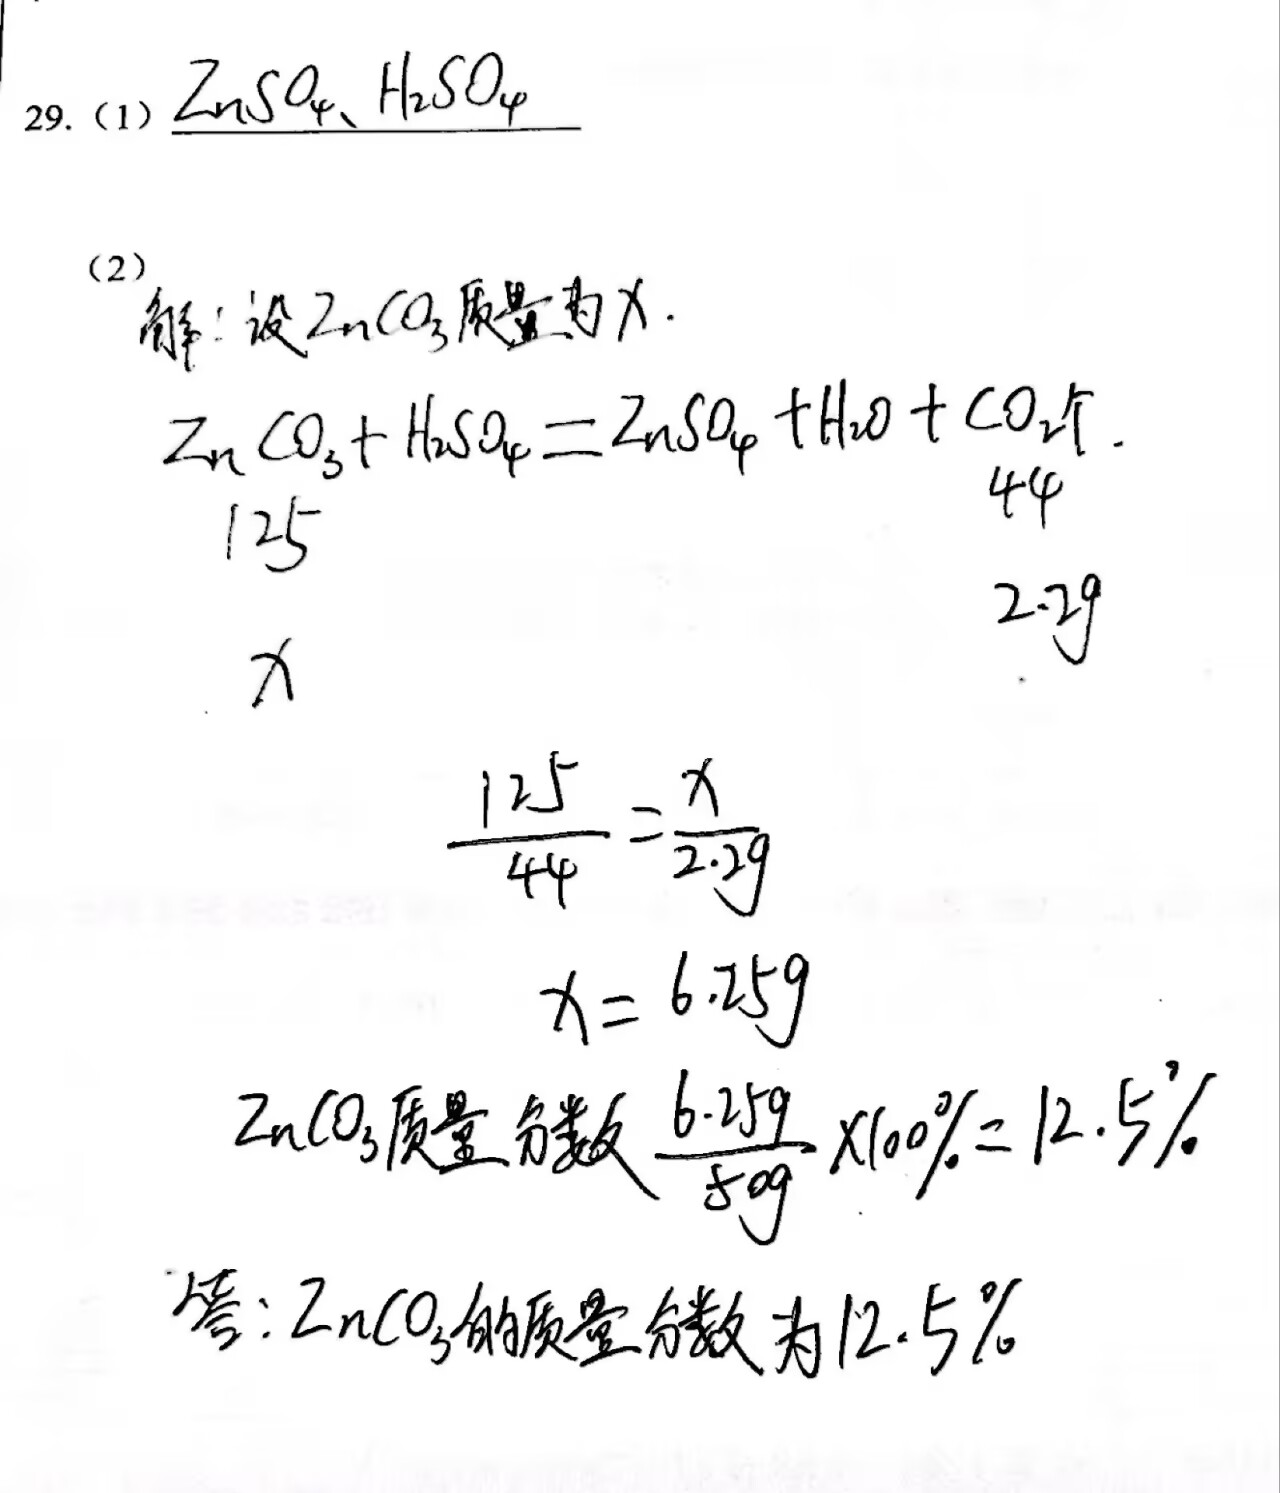 29. (1) ZnSO₄、H₂SO₄
(2)
解：设ZnCO₃质量为x.
ZnCO₃+H₂SO₄=ZnSO₄+H₂O+CO₂↑.
125 44
x 2.2g
125/44=x/2.2g
x=6.25g
ZnCO₃质量分数 6.25g/50g ×100%=12.5%
答：ZnCO₃的质量分数为12.5%